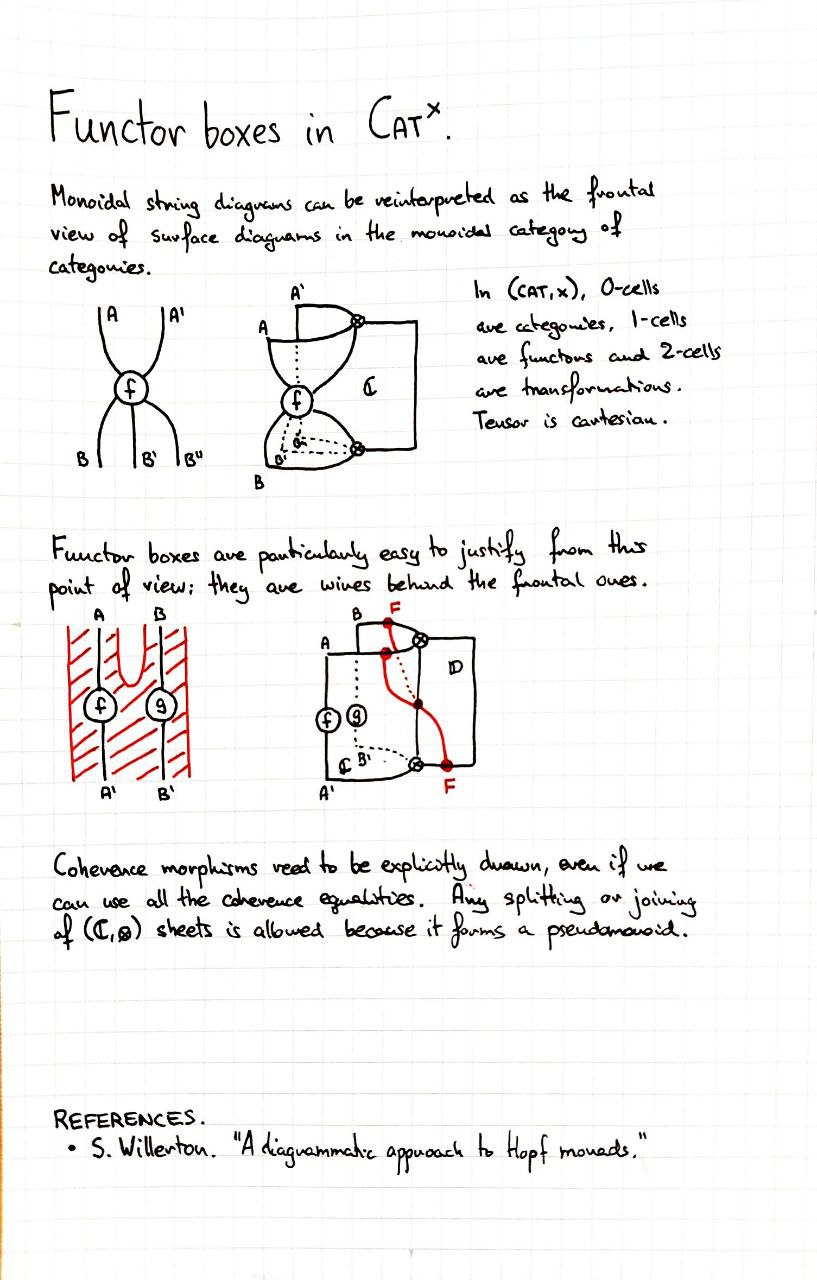 Functor boxes in CAT×.
Monoidal string diagrams can be reinterpreted as the frontal
view of surface diagrams in the monoidal category of
categories.
A A'
f
B B' B''
A'
A
⊗
ℂ
f
B''
B'
⊗
B
In (CAT,×), 0-cells
are categories, 1-cells
are functors and 2-cells
are transformations.
Tensor is cartesian.
Functor boxes are particularly easy to justify from this
point of view; they are wires behind the frontal ones.
A B
f g
A' B'
B F
A ⊗
𝔻
f g
ℂ B' ⊗
A' F
Coherence morphisms need to be explicitly drawn, even if we
can use all the coherence equalities. Any splitting or joining
of (ℂ,⊗) sheets is allowed because it forms a pseudomonoid.
REFERENCES.
• S. Willerton. "A diagrammatic approach to Hopf monads."